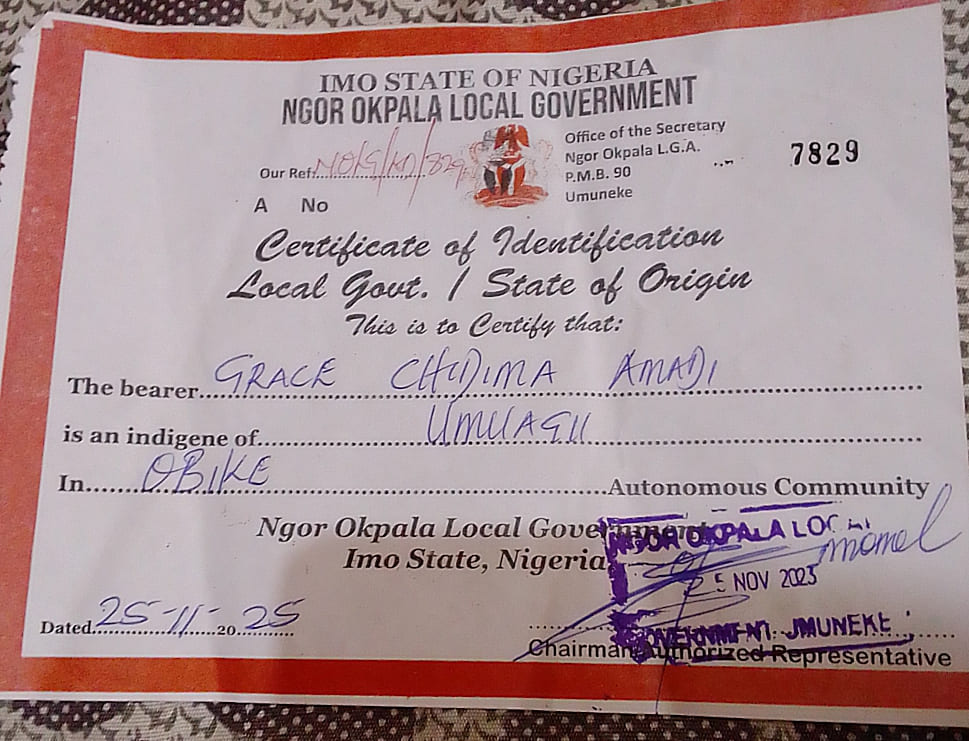 IMO STATE OF NIGERIA
NGOR OKPALA LOCAL GOVERNMENT
Office of the Secretary
Ngor Okpala L.G.A.
P.M.B. 90
Umuneke
7829
Our Ref:
A No
Certificate of Identification
Local Govt. / State of Origin
This is to Certify that:
The bearer GRACE CHIDIMA AMADI
is an indigene of UMUAGU
In OBIKE Autonomous Community
Ngor Okpala Local Government
Imo State, Nigeria
NGOR OKPALA LOCAL
5 NOV 2023
GOVERNMENT. UMUNEKE
Dated 25-11-2025
Chairman/Authorized Representative